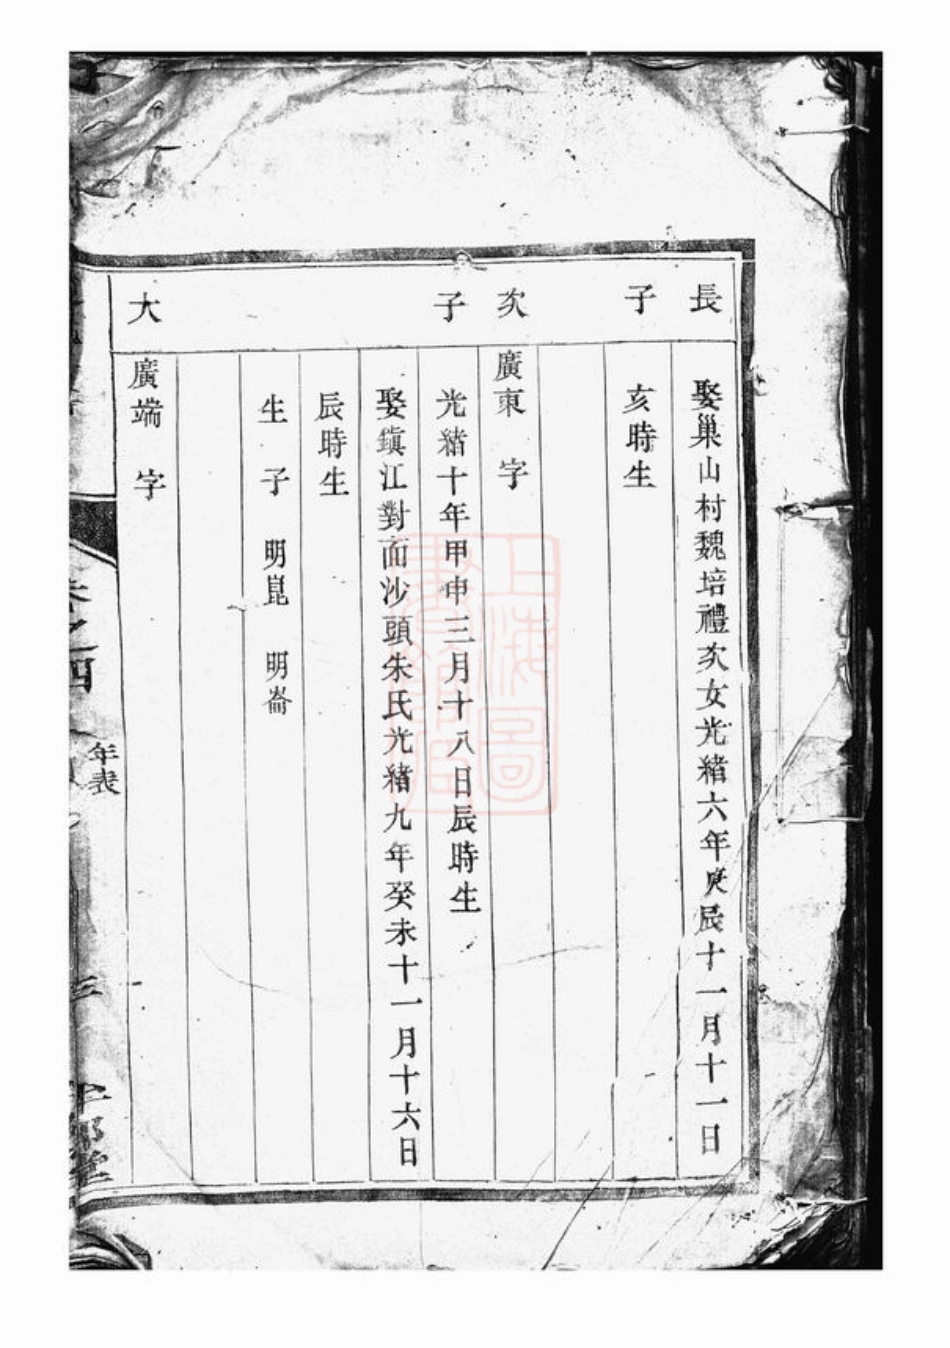 長
娶巢山村魏培禮次女光緒六年庚辰十一月十一日
子
亥時生
次
廣東 字
子
光緒十年甲申三月十八日辰時生
娶鎮江對面沙頭朱氏光緒九年癸未十一月十六日
辰時生
生 子 明崑 明崙
大
廣端 字
卷之四
年表
三
上海圖
書館藏